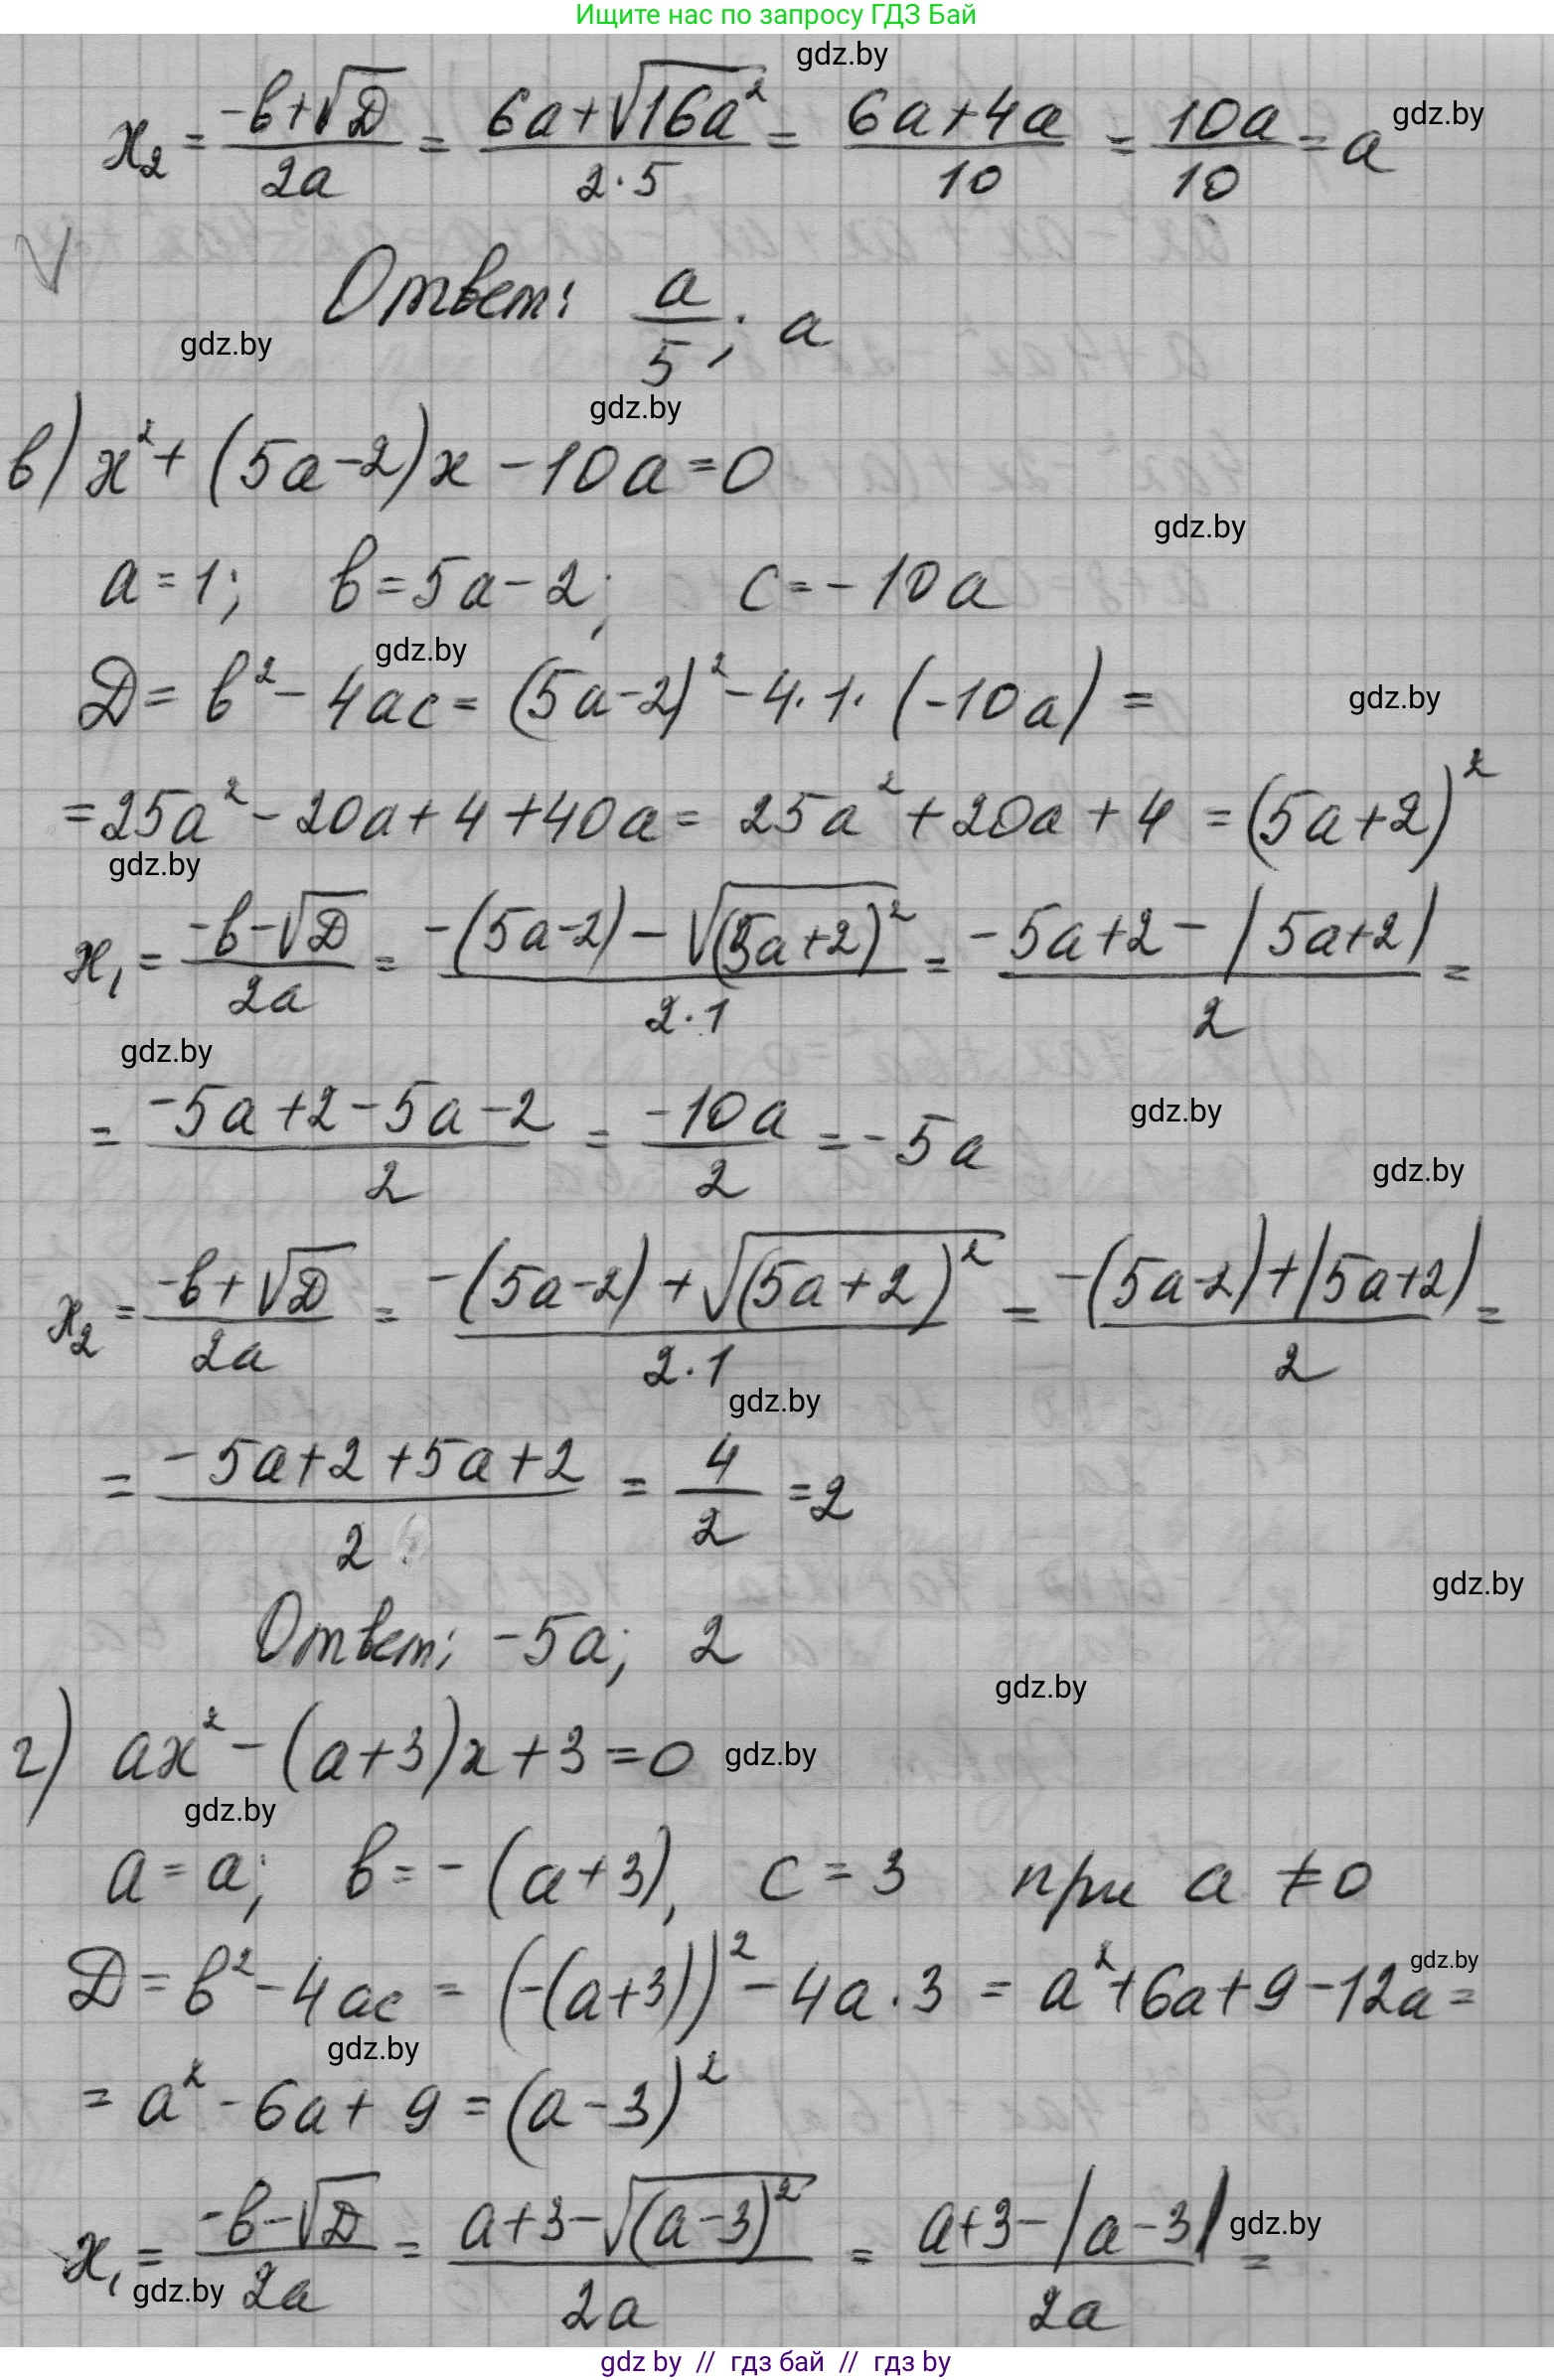 Ищите нас по запросу ГДЗ Бай
gdz.by
x₂ = (-b+√D)/(2a) = (6a+√(16a²))/(2·5) = (6a+4a)/10 = 10a/10 = a
gdz.by
Ответ: a/5; a
gdz.by
gdz.by
в) x² + (5a-2)x - 10a = 0
gdz.by
a = 1; b = 5a - 2; c = -10a
gdz.by
D = b² - 4ac = (5a-2)² - 4·1·(-10a) =
gdz.by
= 25a² - 20a + 4 + 40a = 25a² + 20a + 4 = (5a+2)²
gdz.by
x₁ = (-b-√D)/(2a) = (-(5a-2) - √((5a+2)²))/(2·1) = (-5a+2 - |5a+2|)/2 =
gdz.by
= (-5a+2-5a-2)/2 = -10a/2 = -5a
gdz.by
gdz.by
x₂ = (-b+√D)/(2a) = (-(5a-2) + √((5a+2)²))/(2·1) = (-(5a-2)+|5a+2|)/2 =
gdz.by
= (-5a+2+5a+2)/2 = 4/2 = 2
gdz.by
Ответ: -5a; 2
gdz.by
г) ax² - (a+3)x + 3 = 0
gdz.by
gdz.by
a = a; b = -(a+3), c = 3 при a ≠ 0
D = b² - 4ac = (-(a+3))² - 4a·3 = a² + 6a + 9 - 12a =
gdz.by
gdz.by
= a² - 6a + 9 = (a-3)²
x₁ = (-b-√D)/(2a) = (a+3-√((a-3)²))/(2a) = (a+3-|a-3|)/(2a) =
gdz.by
gdz.by
gdz by // гдз бай // гдз by